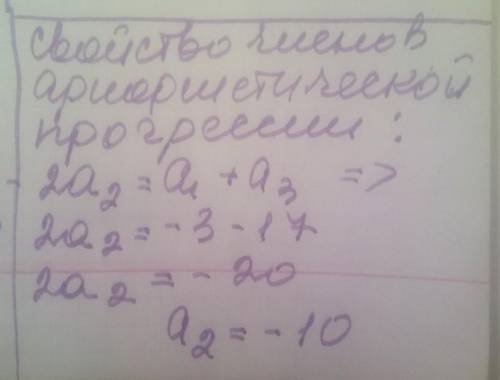 свойство членов
арифметической
прогрессии:
2a₂ = a₁ + a₃ =>
2a₂ = -3 - 17
2a₂ = - 20
a₂ = - 10